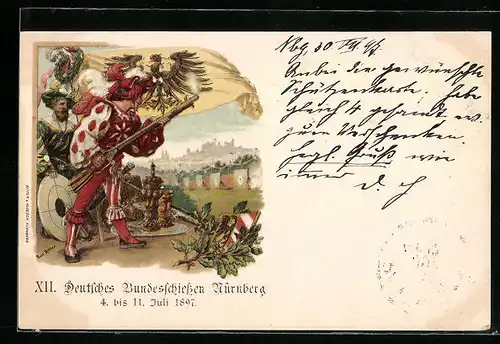 Nbg, 30 VII 97
Anbei die gewünschte
Schützenkarte. habe
gleich 4 gesandt ev.
zum Verschenken.
herzl. Gruß wie
immer
XII. Deutsches Bundesschießen Nürnberg
4. bis 11. Juli 1897.